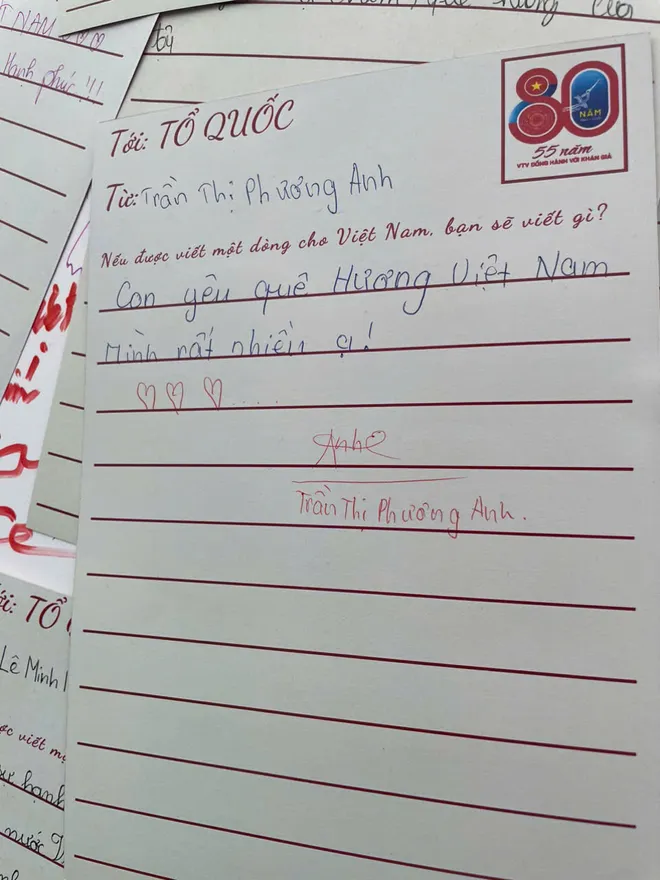 T NAM ♡♡
Hạnh phúc!!!
Tới: TỔ QUỐC
80
NĂM
55 năm
VTV ĐỒNG HÀNH VỚI KHÁN GIẢ
Từ: Trần Thị Phương Anh
Nếu được viết một dòng cho Việt Nam, bạn sẽ viết gì?
Con yêu quê Hương Việt Nam
Mình rất nhiều ạ!
♡ ♡ ♡ .....
Anh
Trần Thị Phương Anh.
ới: TỔ
Lê Minh
ợc viết mộ
sự hạnh
nước